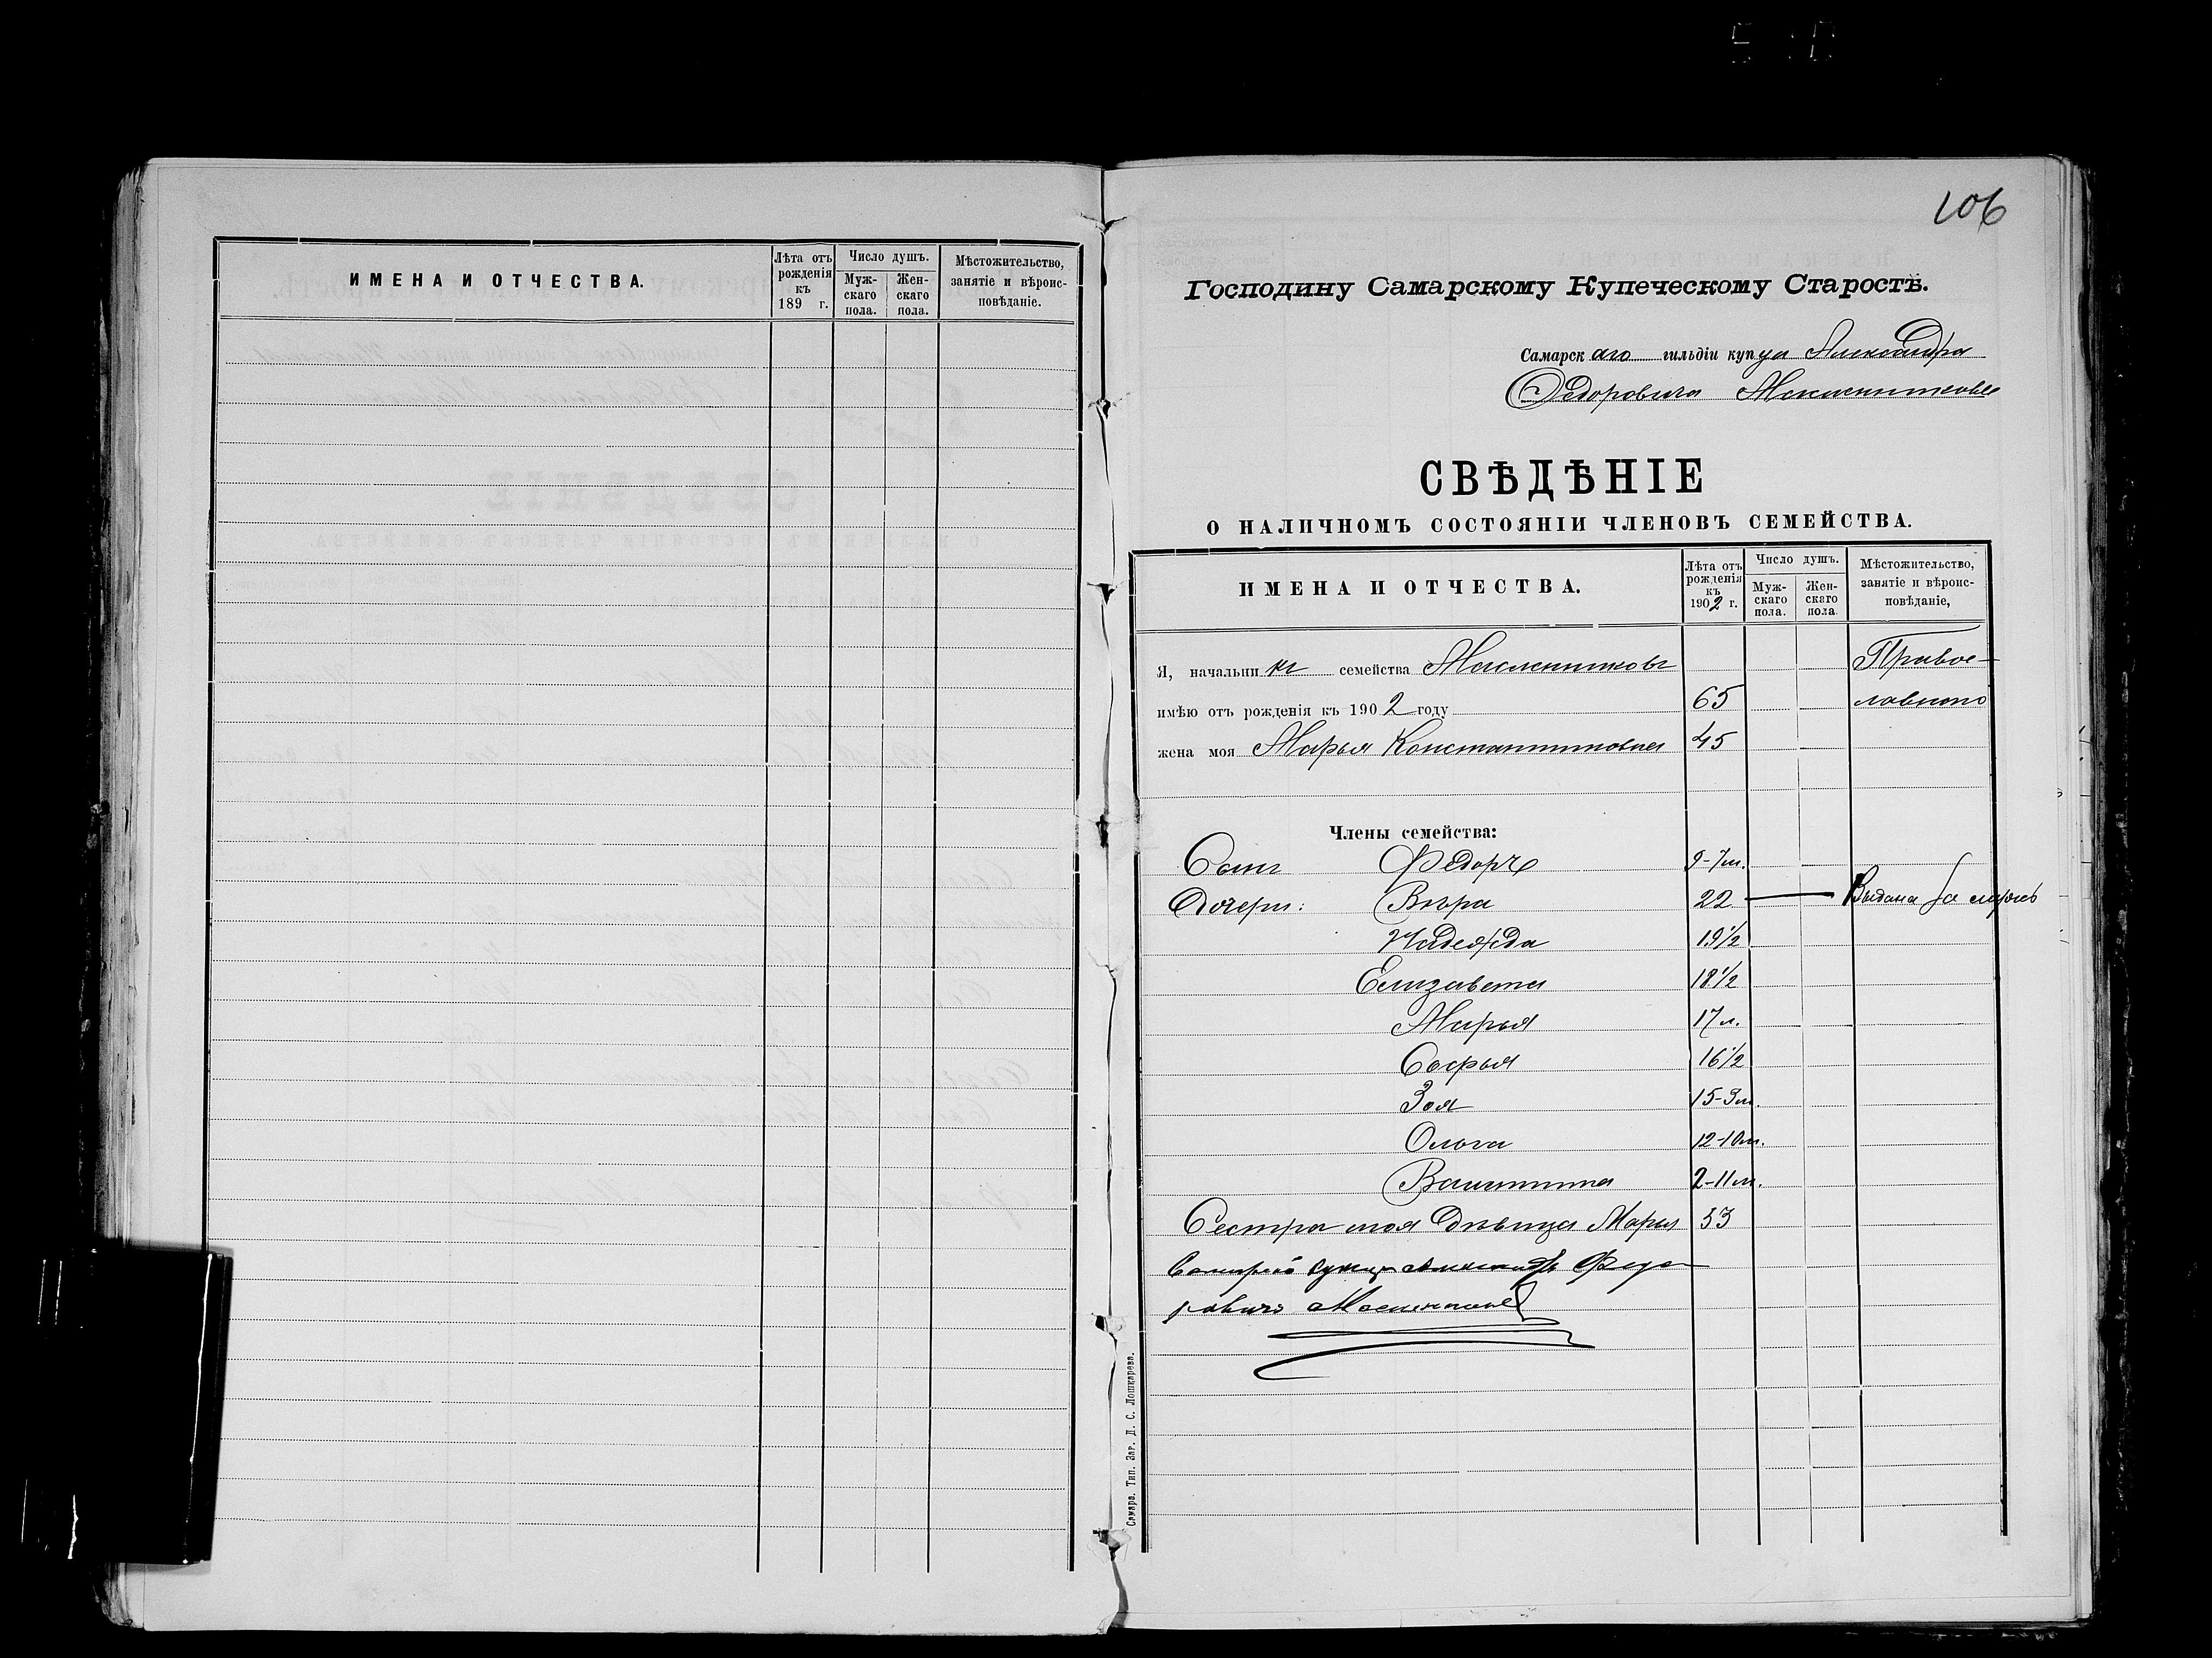 ИМЕНА И ОТЧЕСТВА.
Лѣта отъ рожденія къ 189 г.
Число душъ.
Мужскаго пола.
Женскаго пола.
Мѣстожительство, занятіе и вѣроисповѣданіе.
106
Господину Самарскому Купеческому Старостѣ.
Самарскаго гильдіи купца Александра
Федоровича Масленникова
СВѢДѢНІЕ
О НАЛИЧНОМЪ СОСТОЯНІИ ЧЛЕНОВЪ СЕМЕЙСТВА.
ИМЕНА И ОТЧЕСТВА.
Лѣта отъ рожденія къ 1902 г.
Число душъ.
Мужскаго пола.
Женскаго пола.
Мѣстожительство, занятіе и вѣроисповѣданіе,
Я, начальникъ семейства Масленниковъ Право-
имѣю отъ рожденія къ 1902 году 65 славнаго
жена моя Марья Константиновна 45
Члены семейства:
Сынъ Федоръ 9-7м.
Дочери: Вѣра 22 — Выдана за мужъ
Надежда 19½
Елизавета 18½
Марья 17 л.
Софья 16½
Зоя 15-3м.
Ольга 12-10м.
Валентина 2-11м.
Сестра моя дѣвица Марья 53
Самарской купецъ Александръ Федо
ровичъ Масленников
Самара. Тип. Заг. Д. С. Лошкарева.